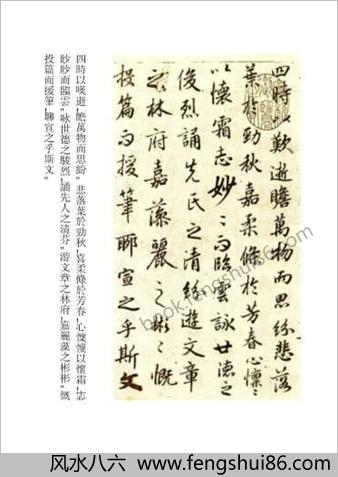 四時以歎逝瞻萬物而思紛悲落
葉於勁秋嘉柔條於芳春心懍〻
以懷霜志妙〻而臨雲詠世德之
俊烈誦先民之清芬遊文章
之林府嘉藻麗之彬〻慨
投篇而援筆聊宣之乎斯文
四時以嘆逝,瞻萬物而思紛。悲落葉於勁秋,喜柔條於芳春,心懍懍以懷霜,志
眇眇而臨雲。咏世德之駿烈,誦先人之清芬。游文章之林府,嘉麗藻之彬彬。慨
投篇而援筆,聊宣之乎斯文。
book.fengshui86.com
风水八六 www.fengshui86.com